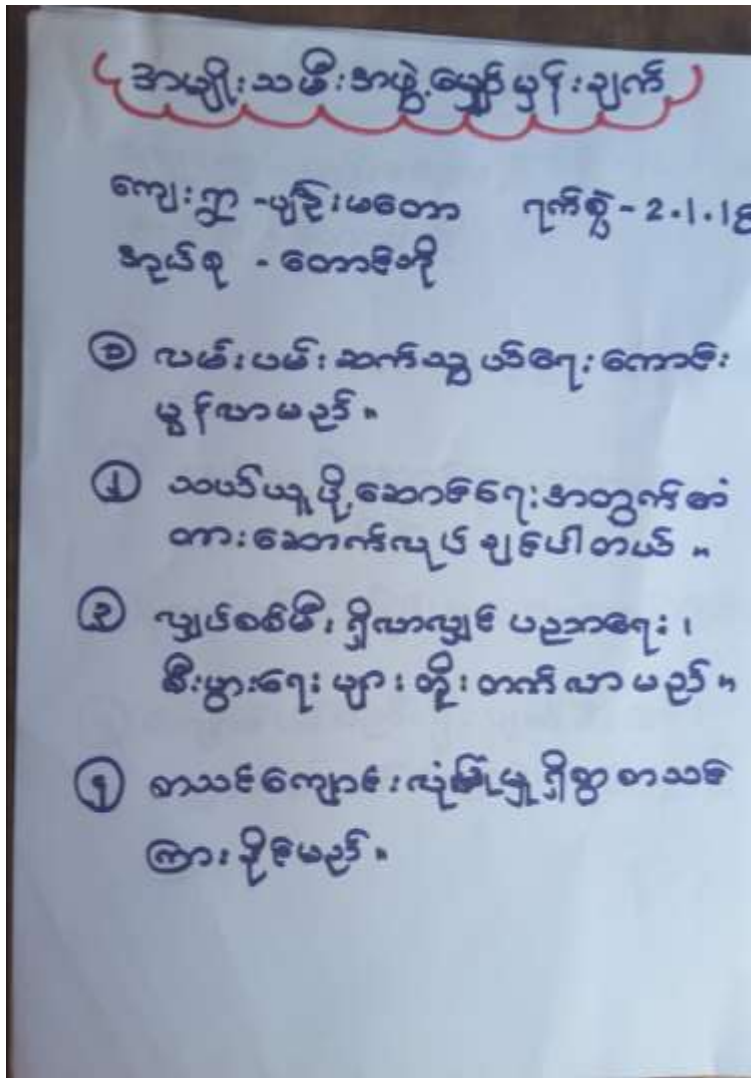 အမျိုးသမီးအဖွဲ့မျှော်မှန်းချက်
ကျေးရွာ - မျဉ်းမတော ရက်စွဲ - 2.1.19
အုပ်စု - တောင်ဘို
၁ လမ်းပမ်းဆက်သွယ်ရေးကောင်း
မွန်လာမည်။
၂ သယ်ယူပို့ဆောင်ရေးအတွက်တံ
တားဆောက်လုပ်ချင်ပါတယ်။
၃ လျှပ်စစ်မီးရှိလာလျှင် ပညာရေး၊
စီးပွားရေးများတိုးတက်လာမည်။
၄ စာသင်ကျောင်းလုံခြုံမှုရှိစွာစာသင်
ကြားနိုင်မည်။